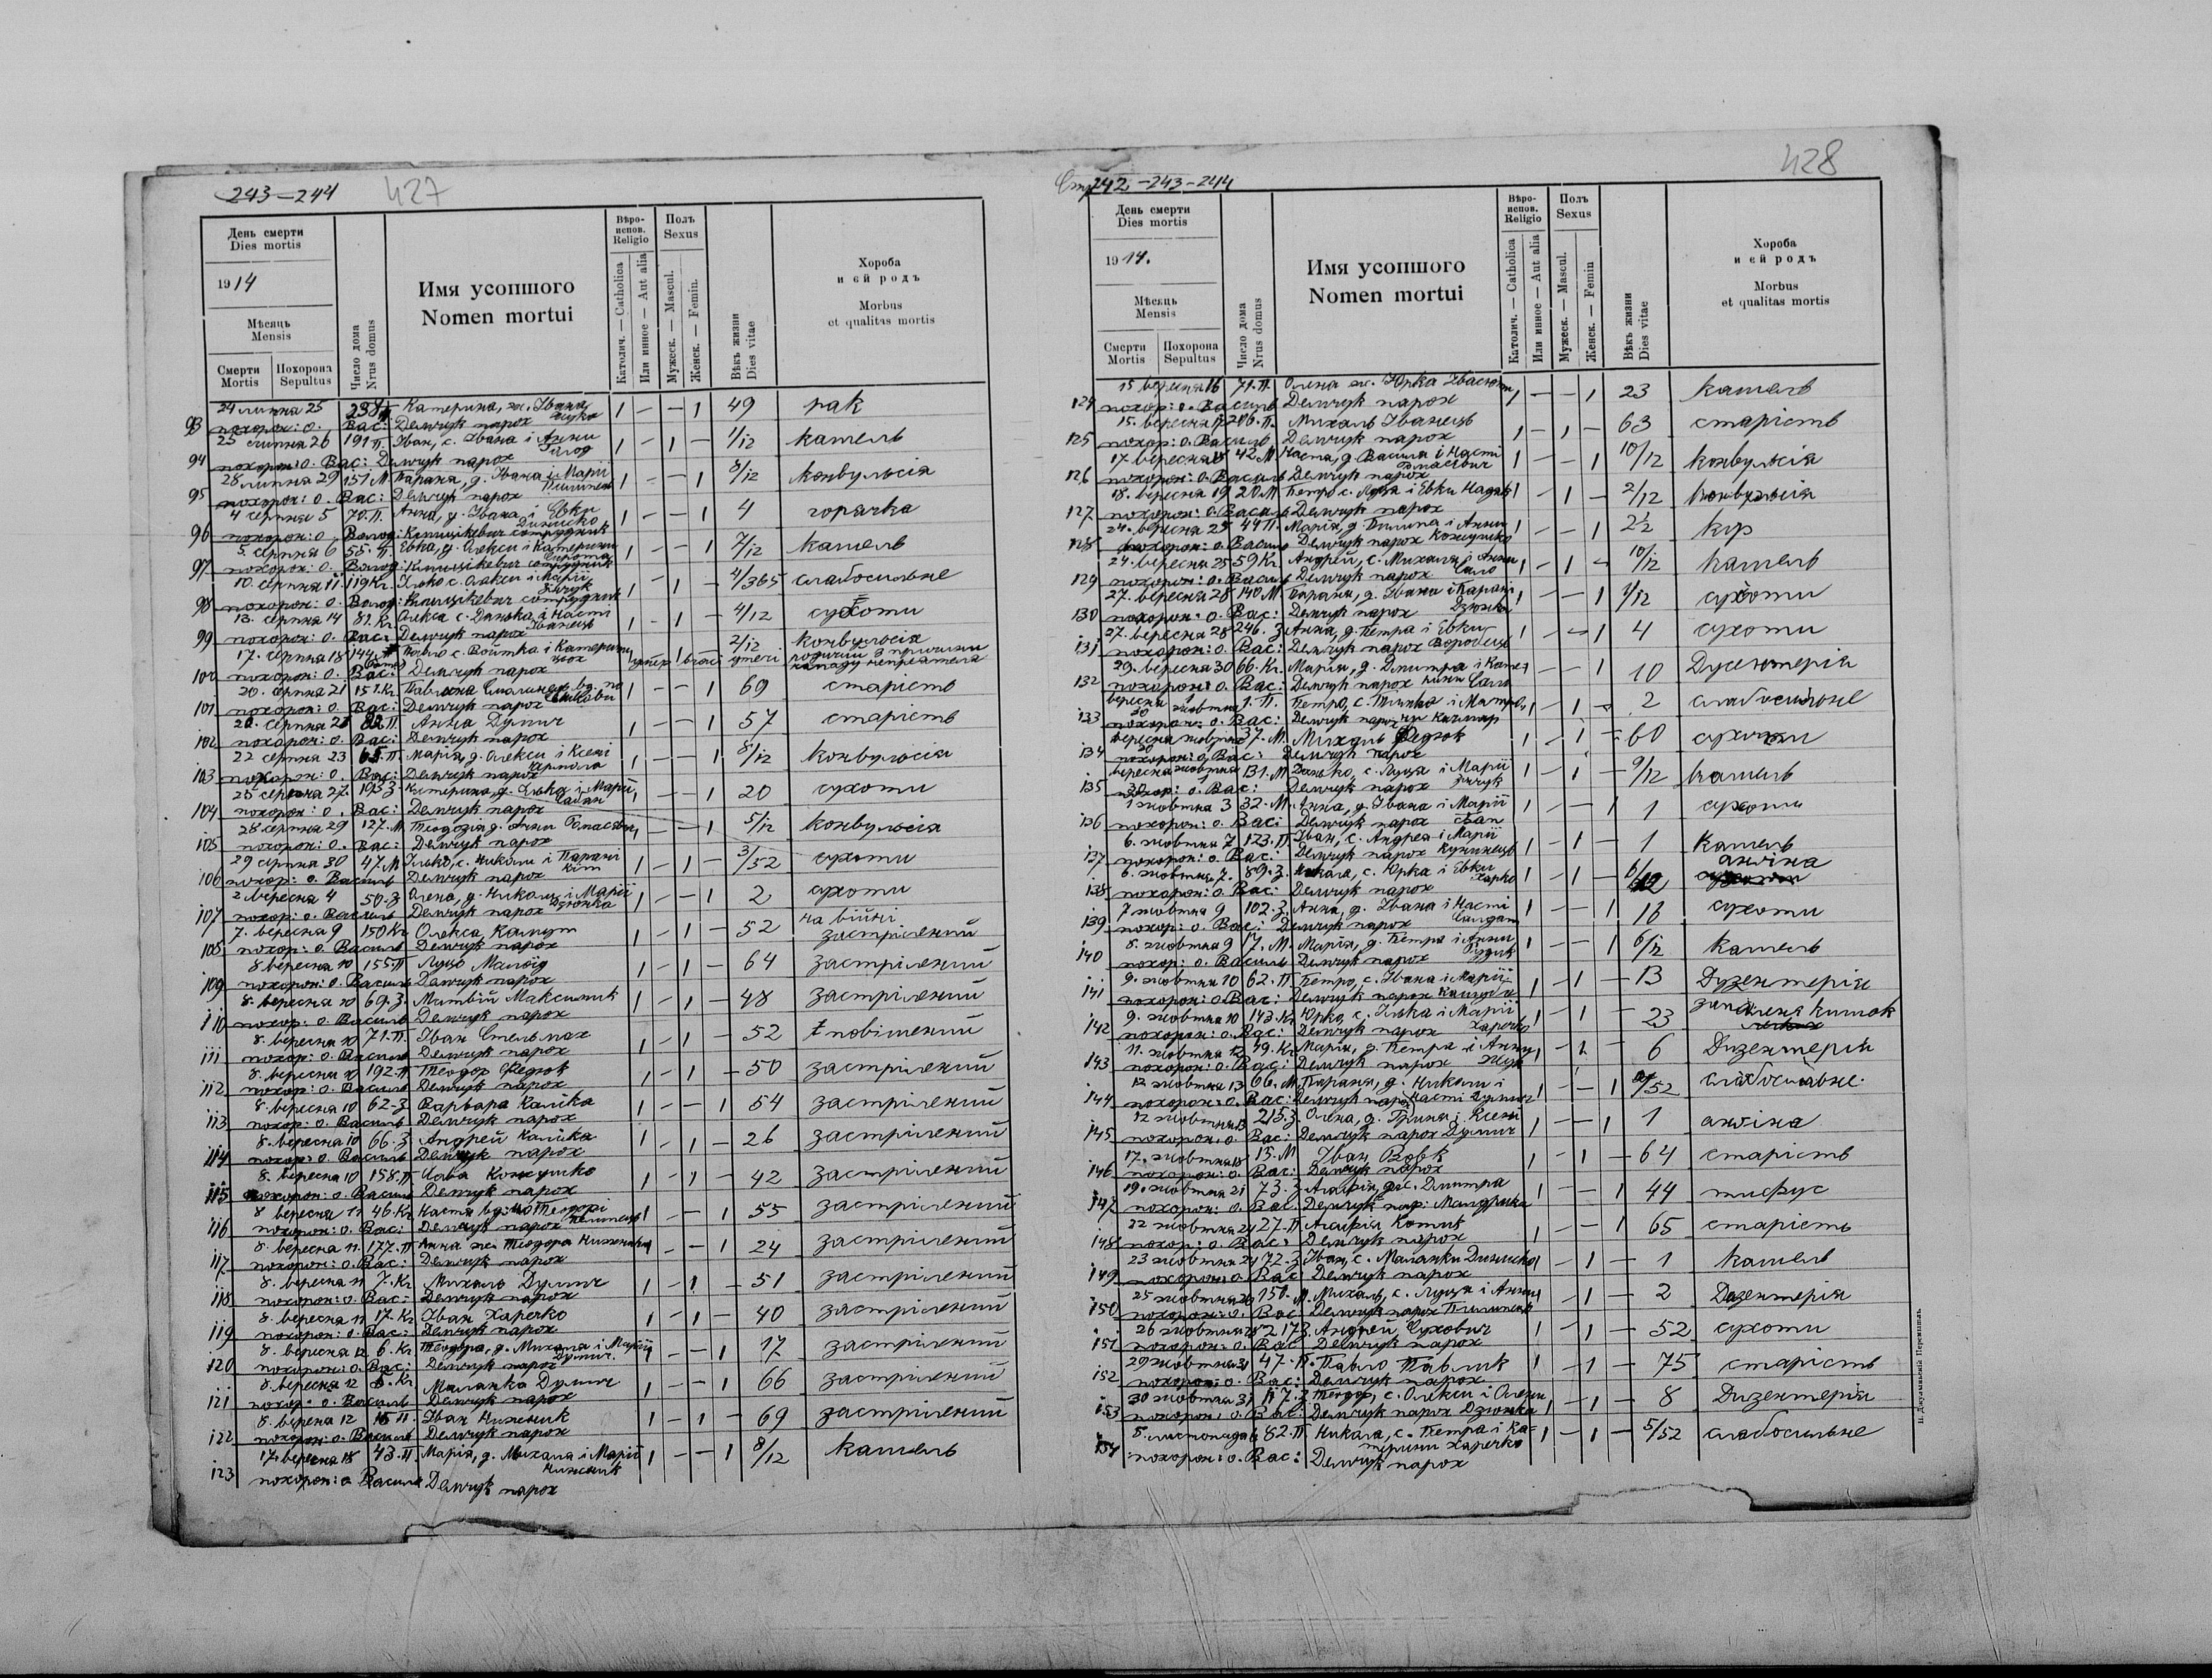 243-244
427
День смерти
Dies mortis
1914
Мѣсяць
Mensis
Смерти
Mortis
Похорона
Sepultus
Число дома
Nrus domus
Имя усопшого
Nomen mortui
Вѣро-
испов.
Religio
Католич. — Catholica
Или инное — Aut alia
Полъ
Sexus
Мужеск. — Mascul.
Женск. — Femin.
Вѣкъ жизни
Dies vitae
Хороба
и ей родъ
Morbus
et qualitas mortis
24 липня 25 Катерина, ж. Івана 1 — — 1 49 рак
93 похорон: о. Вас: Демчук парох
25 липня 26 191 П. Іван, с. Івана і Анни 1 — 1 — 1/12 кашель
94 похорон: о. Вас: Демчук парох
28 липня 29 151 М Параня, д. Івана і Марії 1 — — 1 8/12 конвульсія
95 похорон: о. Вас: Демчук парох
4 серпня 5 70. П. Анна, д. Івана і Евки 1 — — 1 4 горячка
96 похорон: о. Волод: сотрудник
5. серпня 6 55. П. Евка, д. Олекси і Катерини 1 — — 1 7/12 кашель
97 похорон: о. Волод: сотрудник
10. серпня 11 119 Кг. Ілько с. Олекси і Марії 1 — 1 — 4/365 слабосильне
98 похорон: о. Волод: сотрудник
13. серпня 14 81. Кг. Олекса с. Данька і Насті 1 — 1 — 4/12 сухоти
Іванець
99 похорон: о. Вас: Демчук парох
17. серпня 18 144 с. Войтка і Катерини 2/12 конвульсія
100 похорон: о. Вас: Демчук парох
20. серпня 21 151. Кг. 1 — — 1 69 старість
101 похорон: о. Вас: Демчук парох
серпня П. Анна Дулич 1 — — 1 57 старість
102 похорон: о. Вас: Демчук парох
22 серпня 23 65. П. Марія, д. Олекси і Ксені 1 — — 1 8/12 конвульсія
103 похорон: о. Вас: Демчук парох
25 серпня 27. 195 З Катерина, д. Ілька і Марії 1 — — 1 20 сухоти
104 похорон: о. Вас: Демчук парох
28 серпня 29 127. М Теодозія д. Анни 1 — — 1 5/12 конвульсія
105 похорон: о. Вас: Демчук парох
29 серпня 30 47. М Ілько, с. Николи і Парані 1 — 1 — 3/52 сухоти
Кіт
106 похор: о. Василь Демчук парох
2 вересня 4 50. З Олена, д. Николи і Марії 1 — — 1 2 сухоти
Дзюнка
107 похор: о. Василь Демчук парох
7. вересня 9 150 Кг Олекса Капут 1 — 1 — 52 на війні
застрілений
108 похор: о. Василь Демчук парох
8 вересня 10 155. П Луць 1 — 1 — 64 застрілений
109 похорон: о. Василь Демчук парох
8. вересня 10 69. З. Матвій Максимик 1 — 1 — 48 застрілений
110 похор: о. Василь Демчук парох
8. вересня 10 71. П. Іван Стельмах 1 — 1 — 52 повішений
111 похор: о. Василь Демчук парох
8. вересня 10 192. П Теодор Федюк 1 — 1 — 50 застрілений
112 похор: о. Василь Демчук парох
8. вересня 10 62. З Варвара Калічка 1 — — 1 54 застрілений
113 похор: о. Василь Демчук парох
8. вересня 10 66. З Андрей Калічка 1 — 1 — 26 застрілений
114 похор: о. Василь Демчук парох
8. вересня 10 158. П Сава Кожушко 1 — 1 — 42 застрілений
115 похорон: о. Василь Демчук парох
8 вересня 11 46. Кг Настя вд. по Теодорі 1 — — 1 55 застрілений
116 похорон: о. Вас: Демчук парох
8. вересня 11. 177. П Анна ж. Теодора Нижник 1 — — 1 24 застрілений
117 похорон: о. Вас: Демчук парох
8. вересня 11 7. Кг Михаль Дулич 1 — 1 — 51 застрілений
118 похорон: о. Вас: Демчук парох
8. вересня 11 17. Кг Іван Харечко 1 — 1 — 40 застрілений
119 похорон: о. Вас: Демчук парох
8. вересня 12. 6. Кг Теодора, д. Михала і Марії 1 — — 1 17 застрілений
Дулич.
120 похорон: о. Вас: Демчук парох
8. вересня 12 Кг Маланка Дулич 1 — — 1 66 застрілений
121 похор: о. Василь Демчук парох
8. вересня 12 П. Іван Нижник 1 — 1 — 69 застрілений
122 похорон: о. Василь Демчук парох
17. вересня 18 43. П Марія, д. Михала і Марії 1 — — 1 8/12 кашель
Нижник
123 похорон: о. Василь Демчук парох
Стр. 242-243-244
428
День смерти
Dies mortis
1914.
Мѣсяць
Mensis
Смерти
Mortis
Похорона
Sepultus
Число дома
Nrus domus
Имя усопшого
Nomen mortui
Вѣро-
испов.
Religio
Католич. — Catholica
Или инное — Aut alia
Полъ
Sexus
Мужеск. — Mascul.
Женск. — Femin
Вѣкъ жизни
Dies vitae
Хороба
и ей родъ
Morbus
et qualitas mortis
15 вересня 16 71. П. Олена ж. Юрка 1 — — 1 23 кашель
124 похор: о. Василь Демчук парох
15. вересня 17 206. П. Михаль Іванець 1 — 1 — 63 старість
125 похор: о. Василь Демчук парох
17. вересня 18 42 М Настя, д. Василя і Насті 1 — — 1 10/12 конвульсія
126 похорон: о. Василь Демчук парох
18. вересня 19 20 М Петро с. Луця і Евки 1 — 1 — 2/12 конвульсія
127 похорон: о. Василь Демчук парох
24. вересня 25 44 П. Марія, д. Пилипа і Анни 1 — — 1 2 1/2 кір
128 похорон: о. Василь Демчук парох Кожушко
24. вересня 25 59 Кг. Андрей, с. Михала і Анни 1 — 1 — 10/12 кашель
129 похорон: о. Василь Демчук парох
27. вересня 28 140 М Параня, д. Івана і Парані 1 — — 1 1/12 сухоти
130 похорон: о. Вас: Демчук парох Дзюнка
27. вересня 28 246. З Анна, д. Петра і Евки 1 — — 1 4 сухоти
131 похорон: о. Вас: Демчук парох Воробець
29. вересня 30 66. Кг. Марія, д. Дмитра і Кате- 1 — — 1 10 Дизентерія
132 похорон: о. Вас: Демчук парох
вересня жовтня 1. П. Петро, с. 1 — 1 — 2 слабосильне
133 похорон: о. Вас: Демчук парох
вересня жовтня 37. М. Михаль Федюк 1 — 1 — 60 сухоти
134 похорон: о. Вас: Демчук парох
вересня жовтня 131. М Данько, с. Луця і Марії 1 — 1 — 9/12 кашель
135 похор: о. Вас: Демчук парох
1 жовтня 3 32. М. Анна, д. Івана і Марії 1 — — 1 1 сухоти
136 похорон: о. Вас: Демчук парох
6. жовтня 7 123. П. Іван, с. Андрея і Марії 1 — 1 — 1 кашель
137 похорон: о. Вас: Демчук парох
6. жовтня 7. 89. З. Никола, с. Юрка і Евки 1 — 1 — 6/12 ангіна
138 похорон: о. Вас: Демчук парох
7 жовтня 9 102. З. Анна, д. Івана і Насті 1 — — 1 сухоти
139 похор: о. Вас: Демчук парох
8. жовтня 9 17. М. Марія, д. Петра і Анни 1 — — 1 6/12 кашель
140 похор: о. Василь Демчук парох
9. жовтня 10 62. П. Петро, с. Івана і Марії 1 — 1 — 13 Дизентерія
141 похорон: о. Вас: Демчук парох
9. жовтня 10 143. Кг. Юрко, с. Ілька і Марії 1 — 1 — 23 запаленя кишок
Харечко
142 похорон: о. Вас: Демчук парох
11. жовтня 12 49. Кг. Марія, д. Петра і Анни 6 Дизентерія
143 похорон: о. Вас: Демчук парох
12 жовтня 13 66. М. Параня, д. Николи і 1 — — 1 слабосильне.
144 похорон: о. Вас: Демчук парох Насті Дулич
12 жовтня 13 215. З. Олена, д. Гриня і Ксені 1 — — 1 1 ангіна
145 похорон: о. Вас: Демчук парох Дулич
17. жовтня 18 13. М Іван Вовк 1 — 1 — 64 старість
146 похорон: о. Вас: Демчук парох
19. жовтня 21 73. З Агафія, ж. Дмитра 1 — — 1 44 тифус
147 похорон: о. Вас. Демчук пар: Мандрика
22 жовтня 24 27. П Агафія Котик 1 — — 1 65 старість
148 похор: о. Вас: Демчук парох
23 жовтня 24 72. З Іван, с. Маланки 1 — 1 — 1 кашель
149 похорон: о. Вас: Демчук парох
25 жовтня 26 150. М. Михаль, с. Луця і Анни 1 — 1 — 2 Дизентерія
150 похорон: о. Вас Демчук парох
26 жовтня 28 217 З. Андрей Сухович 1 — 1 — 52 сухоти
151 похорон: о. Вас Демчук парох
29 жовтня 31 47. П. Павло Павлик 1 — 1 — 75 старість
152 похорон: о. Вас: Демчук парох
30 жовтня 31 117. З Теодор, с. Олекси і Олени 1 — 1 — 8 Дизентерія
153 похорон: о. Вас: Демчук парох Дзюнка
5. листопада 6 82. П Никола, с. Петра і Ка- 1 — 1 — 5/52 слабосильне
терини Харечко
154 похорон: о. Вас: Демчук парох